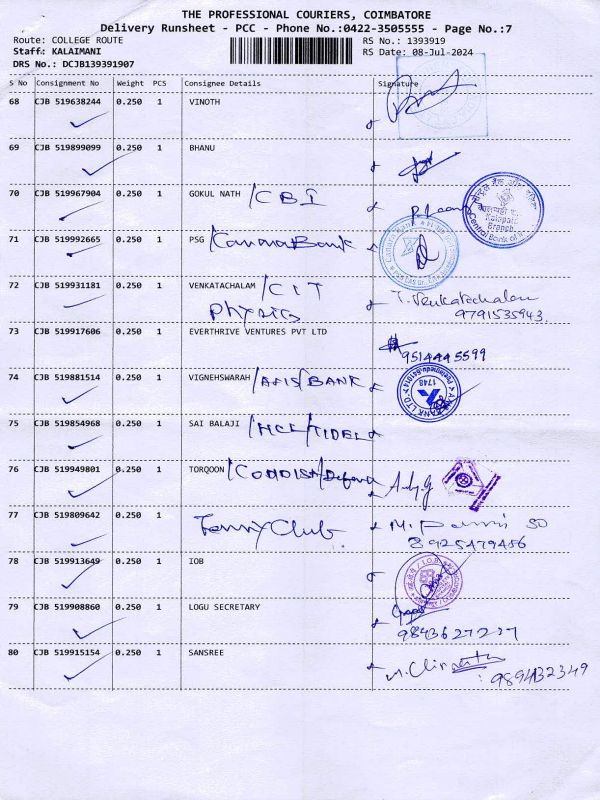 THE PROFESSIONAL COURIERS, COIMBATORE
Delivery Runsheet - PCC - Phone No.:0422-3505555 - Page No.:7
Route: COLLEGE ROUTE
Staff: KALAIMANI
DRS No.: DCJB139391907
RS No.: 1393919
RS Date: 08-Jul-2024
S No Consignment No Weight PCS Consignee Details Signature
68 CJB 519638244 0.250 1 VINOTH
69 CJB 519899099 0.250 1 BHANU
70 CJB 519967904 0.250 1 GOKUL NATH /CBI
71 CJB 519992665 0.250 1 PSG /Canara Bank
72 CJB 519931181 0.250 1 VENKATACHALAM /CIT T. Venkatachalam
Physics 9791535943
73 CJB 519917606 0.250 1 EVERTHRIVE VENTURES PVT LTD
9514445599
74 CJB 519881514 0.250 1 VIGNEHSWARAH /AXIS/BANK
1748
75 CJB 519854968 0.250 1 SAI BALAJI /HCL/TIDEL
76 CJB 519949801 0.250 1 TORQOON
77 CJB 519809642 0.250 1 Club
8925479486
78 CJB 519913649 0.250 1 IOB
79 CJB 519908860 0.250 1 LOGU SECRETARY
9843627227
80 CJB 519915154 0.250 1 SANSREE
9894132349